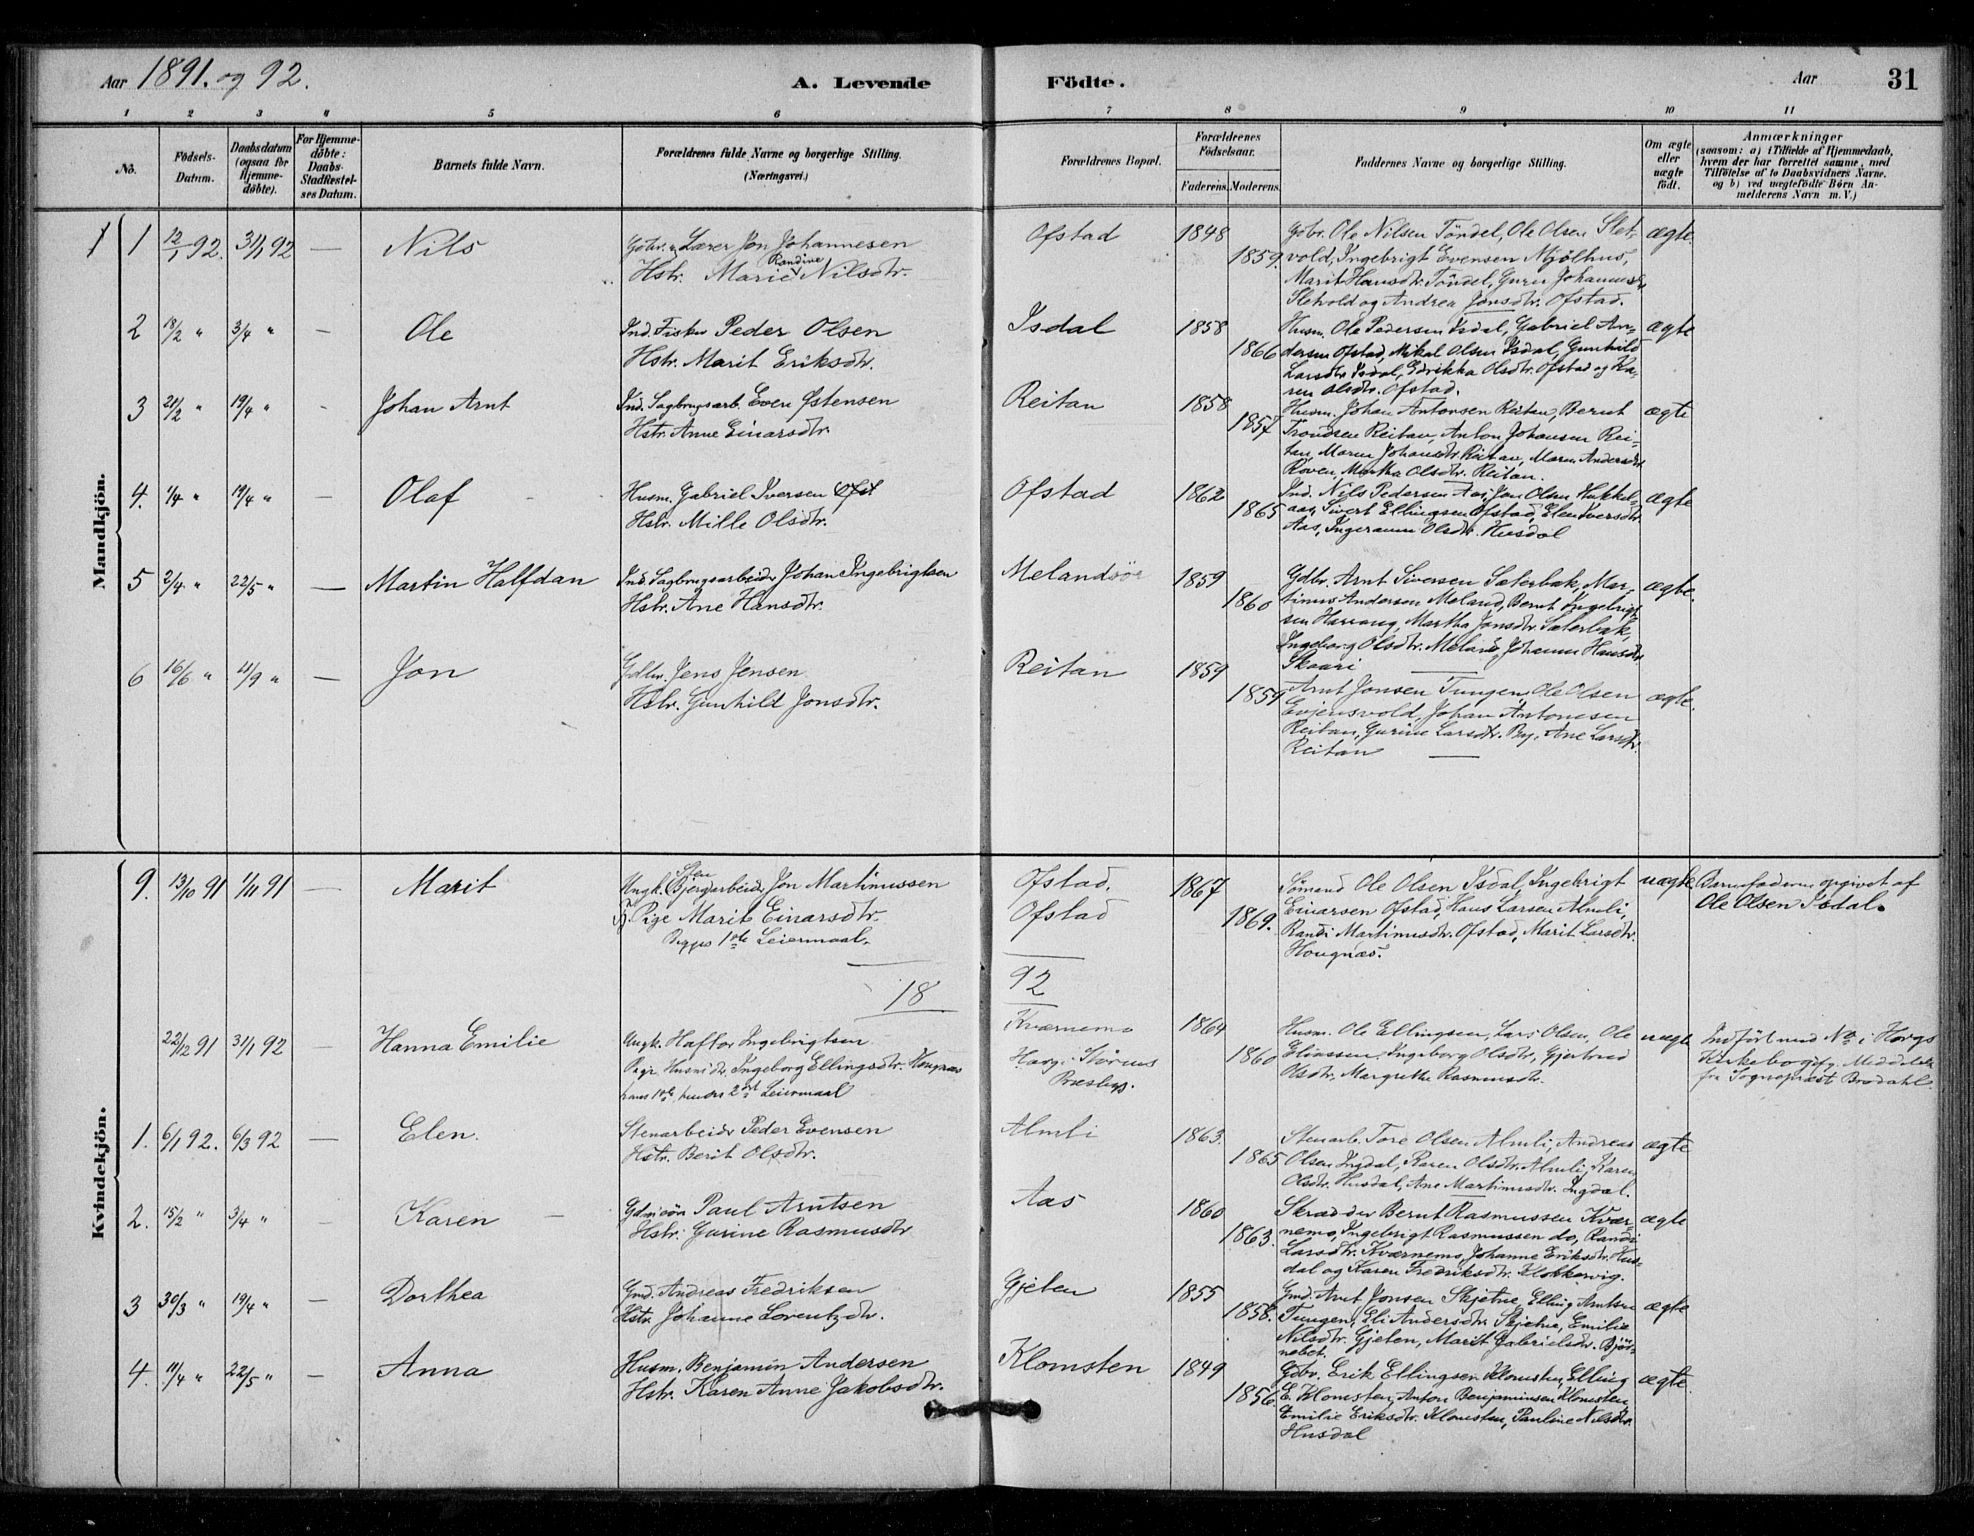 Aar 1891. og 92.
A. Levende Födte.
Aar
31
1 2 3 4 5 6 7 8 9 10 11
No.
Födsels-
Datum.
Daabsdatum
(ogsaa for
Hjemme-
döbte).
For Hjemme-
döbte:
Daabs-
Stadfæstel-
ses Datum.
Barnets fulde Navn.
Forældrenes fulde Navne og borgerlige Stilling.
(Næringsvei.)
Forældrenes Bopæl.
Forældrenes
Födselsaar.
Faderens. Moderens.
Faddernes Navne og borgerlige Stilling.
Om ægte
eller
uægte
födt.
Anmærkninger
(saasom: a) i Tilfælde af Hjemmedaab,
hvem der har forrettet samme, med
Tilföielse af to Daabsvidners Navne.
og b) ved uægtefödte Börn An-
melderens Navn m. V.)
Mandkjön.
1 12/1 92. 31/1 92 — Nils
Gdbr. Lærer Jon Johannesen
Hstr. Marie Randine Nilsdtr.
Ofstad 1848
1859.
Gdbr. Ole Nilsen Töndel, Ole Olsen Slet-
vold, Ingebrigt Evensen Mjölhus,
Marit Hansdtr. Töndel, Guru
Sletvold og Andrea Jonsdtr. Ofstad.
ægte.
2 18/2 " 3/4 " — Ole
Ind. Fisker Peder Olsen
Hstr. Marit Eriksdtr.
Isdal 1858
1866
Husm. Ole Pedersen Isdal, Gabriel An-
dersen Ofstad, Mikal Olsen Isdal, Gunhild
Larsdtr Isdal, Edrikka Olsdtr. Ofstad og Ka-
ren Olsdtr. Ofstad.
ægte
3 21/2 " 19/4 " — Johan Arnt
Ind. Sagbrugsarb. Even Østensen
Hstr. Anne Einarsdtr.
Reitan 1858
1857
Husm. Johan Antonsen Reitan, Bernt
Trondsen Reitan, Anton Johansen Rei-
tan, Maren Johansdtr. Reitan, Maren Andersdtr
Röven, Martha Olsdtr. Reitan.
ægte
4. 1/4 " 19/4 " — Olaf
Husm. Gabriel Iversen
Hstr. Mille Olsdtr.
Ofstad 1862
1865
Ind. Nils Pedersen Aas, Jon Olsen Hukkel-
aas, Sivert Ellingsen Ofstad, Elen Iversdtr.
Aas, Ingeranna Olsdtr. Husdal
ægte
5 2/4 " 22/5 " — Martin Halfdan
Ind. Sagbrugsarbeider Johan Ingebrigtsen
Hstr. Ane Hansdtr.
Melandsör 1859
1860
Gdbr. Arnt Siversen Sæterbak, Mar-
tinus Andersen Meland, Bernt Ingebrigt-
sen Harrang, Martha Jonsdtr. Sæterbak,
Ingeborg Olsdtr. Meland, Johanna Hansdtr
Skaari
ægte.
6 16/6 " 11/9 " — Jon
Gdbr. Jens Jensen
Hstr. Gunhild Jonsdtr.
Reitan 1859
1859
Arnt Jonsen Tungen, Ole Olsen
Evjensvold, Johan Antonsen
Reitan, Gurine Larsdtr. By, Ane Larsdtr.
Reitan
ægte.
Kvindekjön.
9. 13/10 91 1/11 91 — Marit
Ungk. Stenarbeider Jon Martinussen
Pige Marit Einarsdtr.
Begges 1ste Leiermaal.
Ofstad.
Ofstad
1867
1869.
Sömand Ole Olsen Isdal, Ingebrigt
Einarsen Ofstad, Hans Larsen Almli,
Randi Martinusdtr. Ofstad, Marit Larsdtr.
Hougnæs.
uægte.
Barnefaderen opgivet af
Ole Olsen Isdal.
18 92
22/12 91 31/1 92 Hanna Emilie
Ungk. Haftor Ingebrigtsen
Pige Husmdtr. Ingeborg Ellingsdtr. Hougnæs
hans 1ste, hendes 2det Leiermaal
Kværnemo
Horg i Störens
Præstegj.
1864
1860
Husm. Ole Ellingsen, Lars Olsen, Ole
Eliassen, Ingeborg Olsdtr, Gjertrud
Olsdtr, Margrethe Rasmusdtr.
uægte
Indfört med No i Horgs
Kirkebog ifg. Meddelelse
fra Sognepræst Brodahl.
1. 6/1 92. 6/3 92 — Elen.
Stenarbeider Peder Evensen
Hstr. Berit Olsdtr.
Almli 1863.
1865
Stenarb. Tore Olsen Almli, Andreas
Olsen Ingdal, Karen Olsdtr. Almli, Karen
Olsdtr. Husdal, Ane Martinusdtr. Ingdal.
ægte
2. 15/2 " 3/4 " — Karen
Paul Arntsen
Hstr. Gurine Rasmusdtr
Aas 1860
1863.
Skrædder Bernt Rasmussen Kvær-
nemo, Ingebrigt Rasmussen do, Randi
Larsdtr. Kværnemo, Johanne Eriksdtr. Hus-
dal og Karen Fredriksdtr. Klokkervig.
ægte
3 30/3 " 19/4 " — Dorthea
Gmd. Andreas Fredriksen
Hstr. Johanne Lorentzdtr.
Gjeten 1855
1858.
Gmd. Arnt Jonsen Skjetne, Elling Arntsen
Tungen, Eli Andersdtr. Skjetne, Emilie
Nilsdtr. Gjeten, Marit Gabrielsdtr. Björ-
nebet.
ægte
4. 11/4 " 22/5 " — Anna
Husm. Benjamin Andersen
Hstr. Karen Anne Jakobsdtr.
Klomsten 1849
1856
Gdbr. Erik Ellingsen Klomsten, Elling
E. Klomsten, Anton Benjaminsen Klomsten,
Emilie Eriksdtr. Klomsten, Pauline Nilsdtr.
Husdal
ægte.